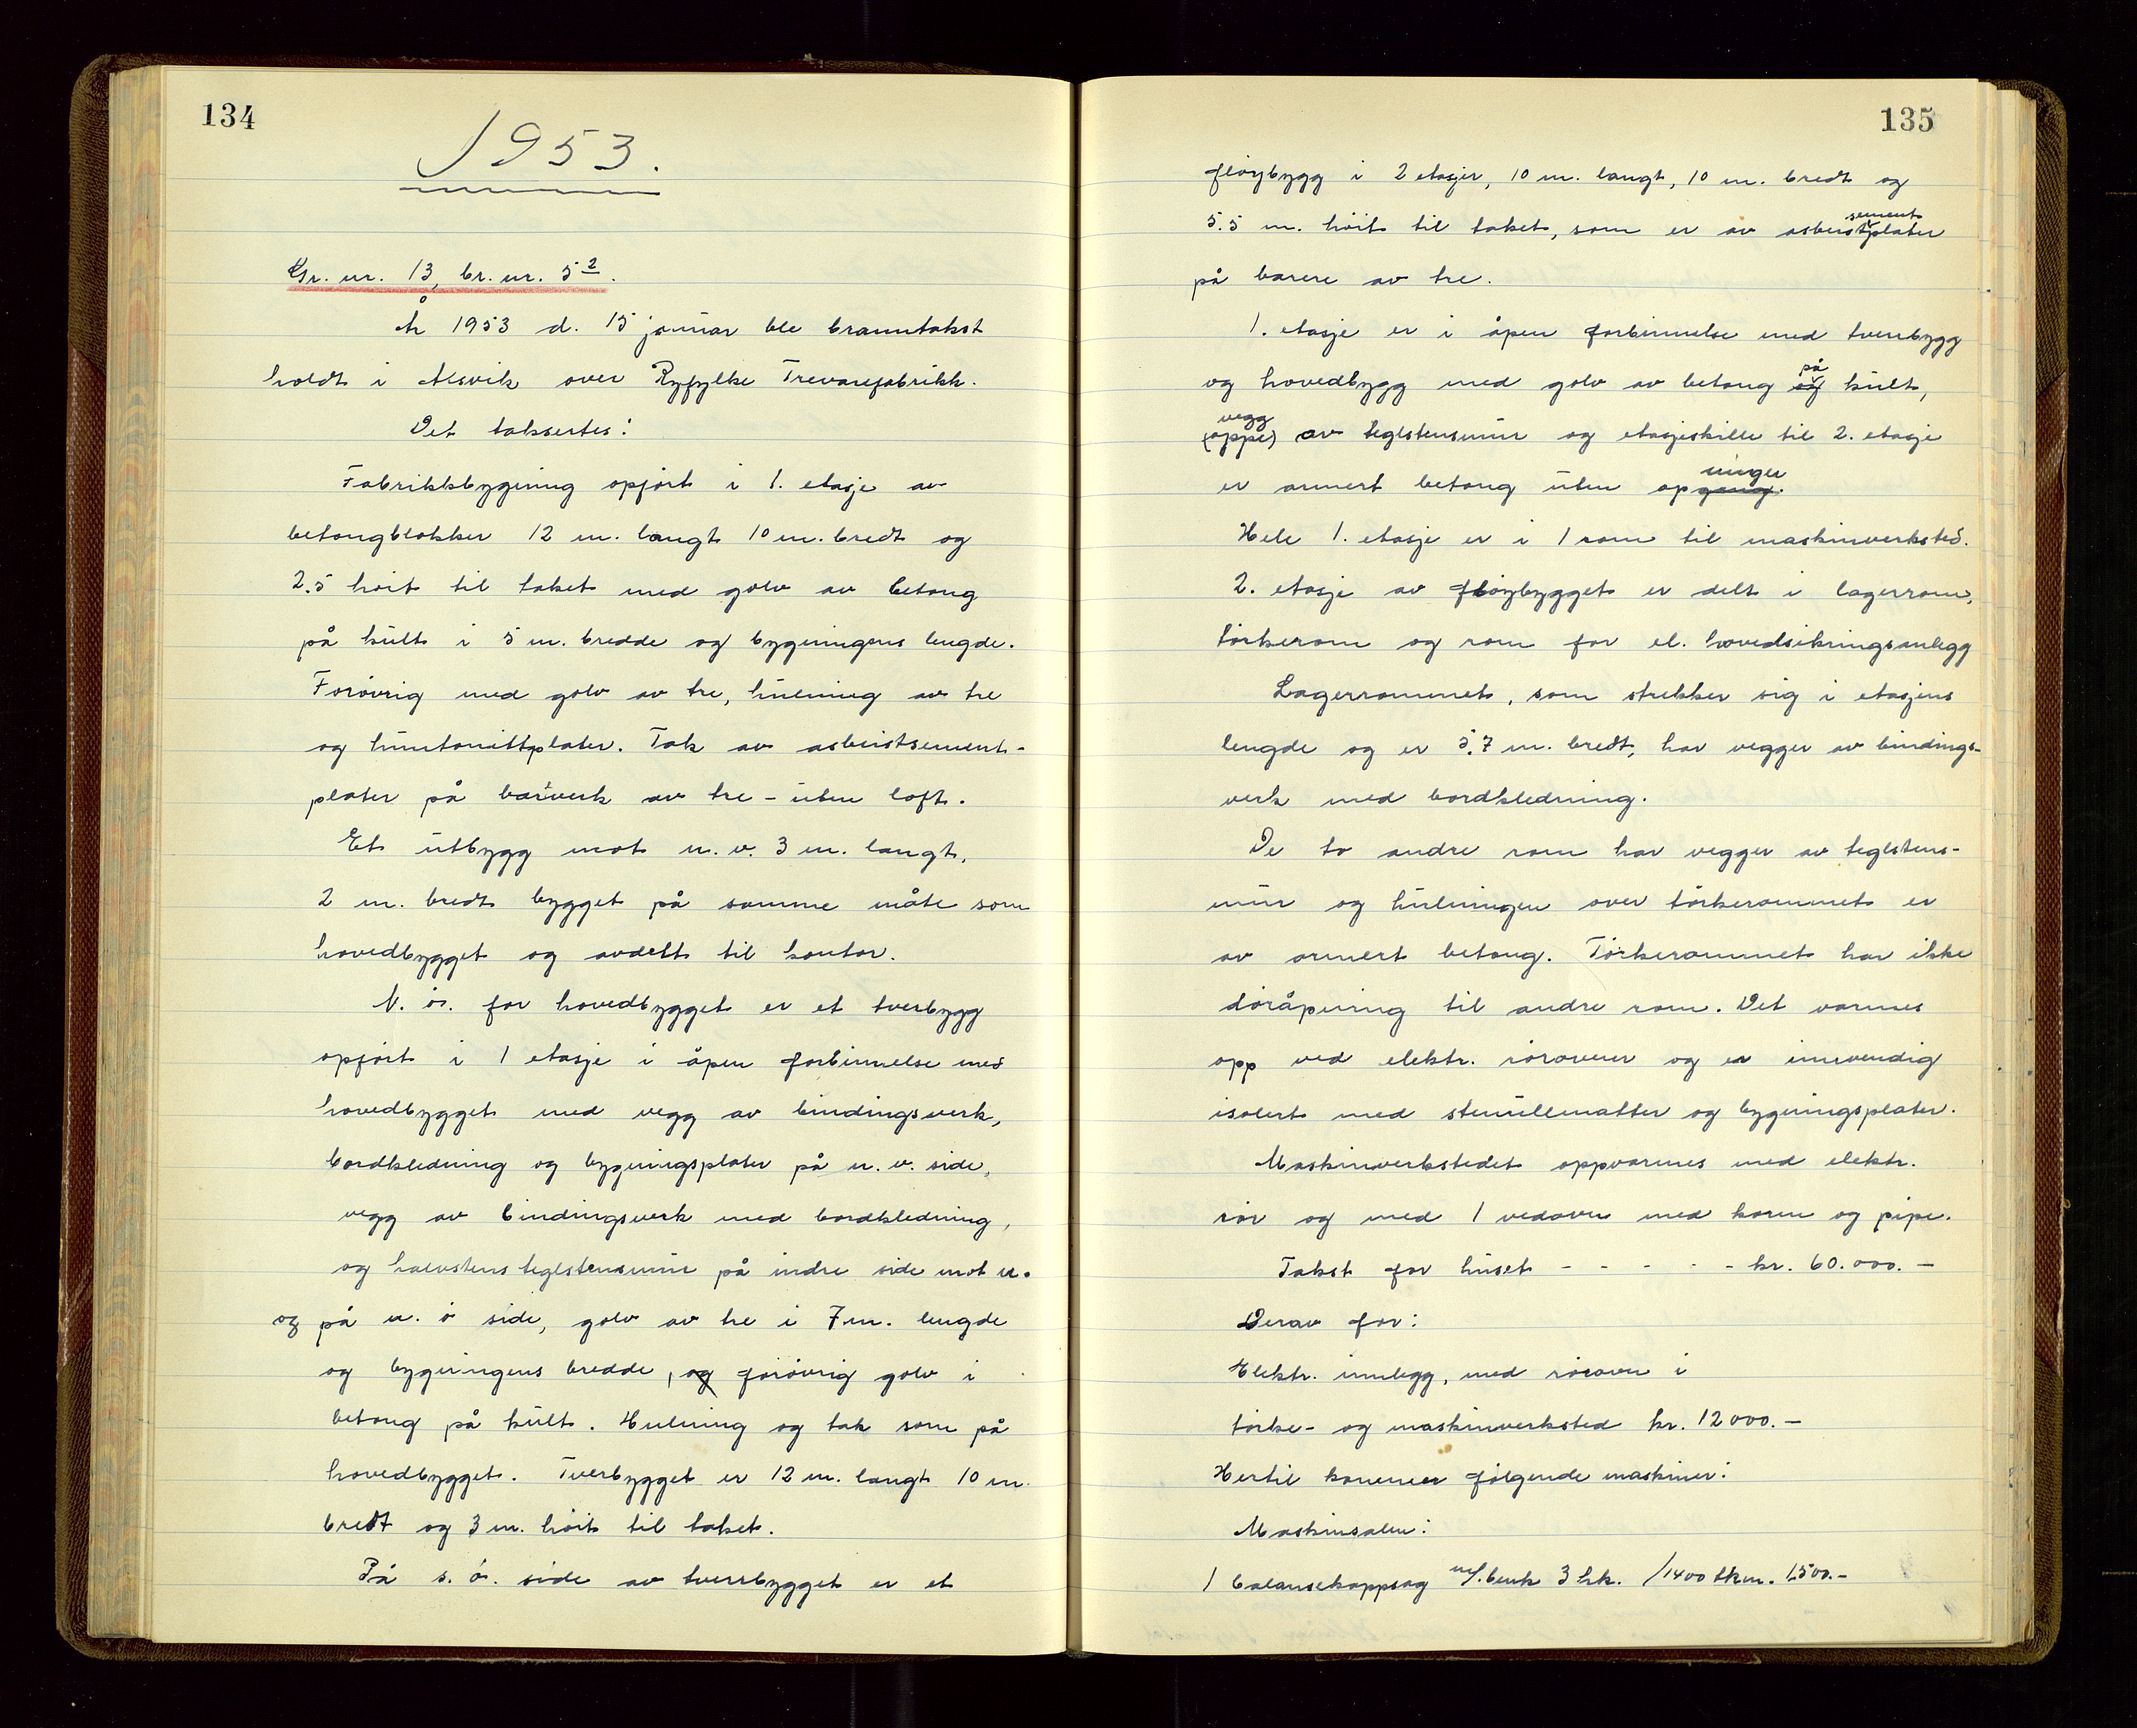 134
1953.
Gr. nr. 13, br. nr. 5².
År 1953 d. 15 januar ble branntakst
holdt i Alsvik over Ryfylke Trevarefabrikk.
Det taksertes:
Fabrikkbygning opført i 1. etasje av
betongblokker 12 m. langt 10 m. bredt og
2.5 høit til taket med golv av betong
på kult i 5 m. bredde og bygningens lengde.
Forøvrig med golv av tre, hulning av tre
og huntonittplater. Tak av asbeistsement-
plater på barverk av tre - uten loft.
Et utbygg mot n. v. 3 m. langt,
2 m. bredt bygget på samme måte som
hovedbygget og avdelt til kontor.
N. ø. for hovedbygget er et tverbygg
opført i 1 etasje i åpen forbinnelse med
hovedbygget med vegg av bindingsverk,
bordkledning og bygningsplater på n. v. side,
vegg av bindingsverk med bordkledning,
og halvstens teglstensmur på indre side mot n.
og på n. ø side, golv av tre i 7 m. lengde
og bygningens bredde, og forøvrig golv i
betong på kult. Hulning og tak som på
hovedbygget. Tverbygget er 12 m. langt 10 m.
bredt og 3 m. høit til taket.
På s. ø. side av tverrbygget er et
135
fløybygg i 2 etasjer, 10 m. langt, 10 m. bredt og
5.5 m. høit til taket, som er av asbeistsementplater
på barere av tre.
1. etasje er i åpen forbinnelse med tverrbygg
og hovedbygg med golv av betong og på kult,
(oppe) vegg av teglstensmur og etasjeskille til 2. etasje
er armert betong uten opgang. ninger
Hele 1. etasje er i 1 rom til maskinverksted.
2. etasje av fløybygget er delt i lagerrom,
tørkerom og rom for el. hovedsikringsanlegg
Lagerrommet, som strekker sig i etasjens
lengde og er 5,7 m. bredt, har vegger av bindings-
verk med bordkledning.
De to andre rom har vegger av teglstens-
mur og hulningen over tørkerommet er
av armert betong. Tørkerommet har ikke
døråpning til andre rom. Det varmes
opp ved elektr. rørovner og er innvendig
isolert med stenullmatter og bygningsplater.
Maskinverkstedet oppvarmes med elektr.
rør og med 1 vedovn med horn og pipe.
Takst for huset - - - - - kr. 60.000.-
Derav for:
Elektr. innlegg, med rørovn i
tørke- og maskinverksted kr. 12000.-
Hertil kommer følgende maskiner:
Maskinsalen:
1 balansekappsag m/. benk 3 hk. /1400 1500.-